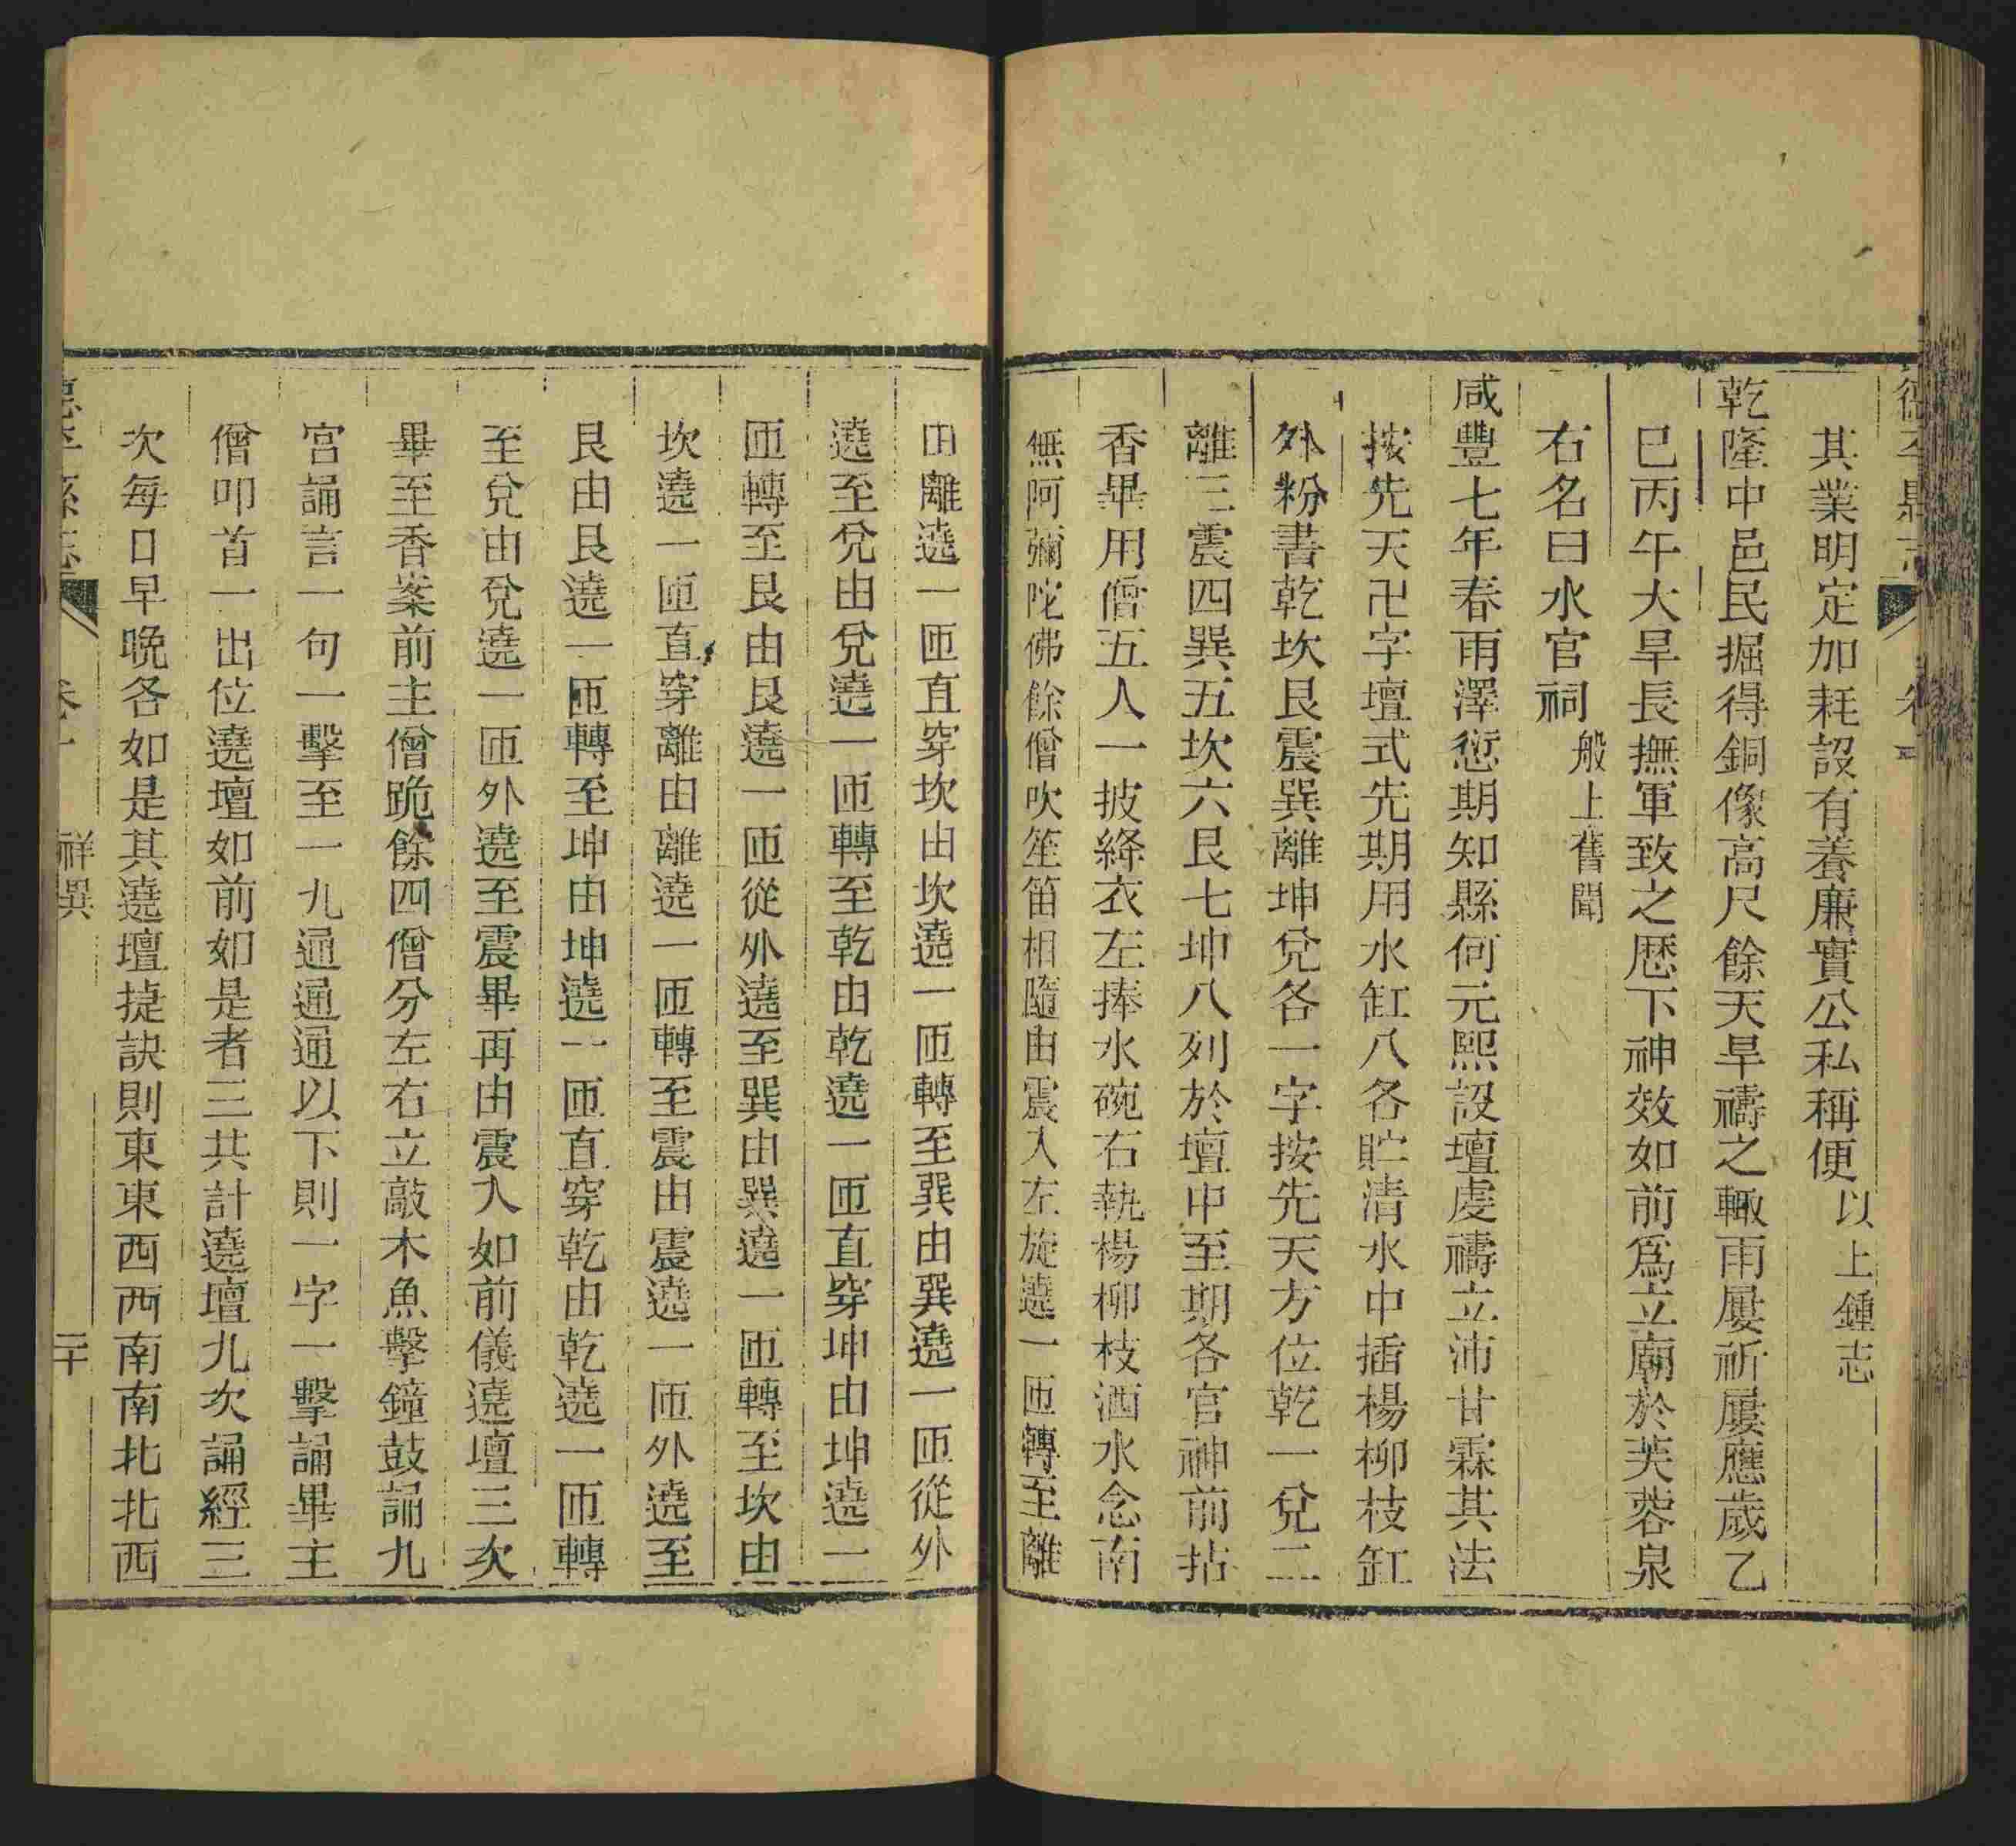 德平縣志
其業明定加耗設有養廉實公私稱便以上鍾志
乾隆中邑民掘得銅像高尺餘天旱禱之輙雨屢祈屢應歲乙
巳丙午大旱長撫軍致之歷下神效如前爲立廟於芙蓉泉
右名曰水官祠般上舊聞
咸豐七年春雨澤愆期知縣何元熙設壇虔禱立沛甘霖其法
按先天卍字壇式先期用水缸八各貯清水中插楊柳枝缸
外粉書乾坎艮震巽離坤兌各一字按先天方位乾一兌二
離三震四巽五坎六艮七坤八列於壇中至期各官神前拈
香畢用僧五人一披絳衣左捧水碗右執楊柳枝洒水念南
無阿彌陀佛餘僧吹笙笛相隨由震入左旋遶一匝轉至離
由離遶一匝直穿坎由坎遶一匝轉至巽由巽遶一匝從外
遶至兌由兌遶一匝轉至乾由乾遶一匝直穿坤由坤遶一
匝轉至艮由艮遶一匝從外遶至巽由巽遶一匝轉至坎由
坎遶一匝直穿離由離遶一匝轉至震由震遶一匝外遶至
艮由艮遶一匝轉至坤由坤遶一匝直穿乾由乾遶一匝轉
至兌由兌遶一匝外遶至震畢再由震入如前儀遶壇三次
畢至香案前主僧跪餘四僧分左右立敲木魚擊鐘鼓誦九
宮誦言一句一擊至一九通通通以下則一字一擊誦畢主
僧叩首一出位遶壇如前如是者三共計遶壇九次誦經三
次每日早晚各如是其遶壇捷訣則東東西西南南北北西
德平縣志 卷十 祥異 二十